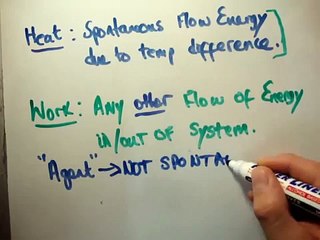 Heat: Spontaneous Flow Energy
due to temp difference.
Work: Any other Flow of Energy
in/out of System.
"Agent" → NOT SPONTA